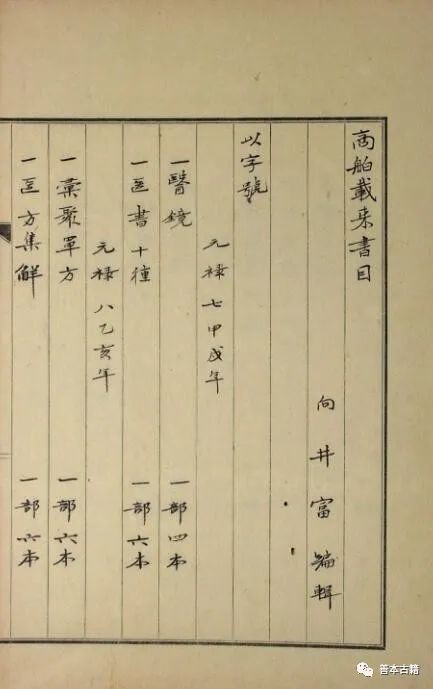 商舶載来書目
向井富編輯
以字號
元禄七甲戌年
一醫鏡 一部四本
一医書十種 一部六本
元禄八乙亥年
一彙聚單方 一部六本
一医方集解 一部六本
善本古籍